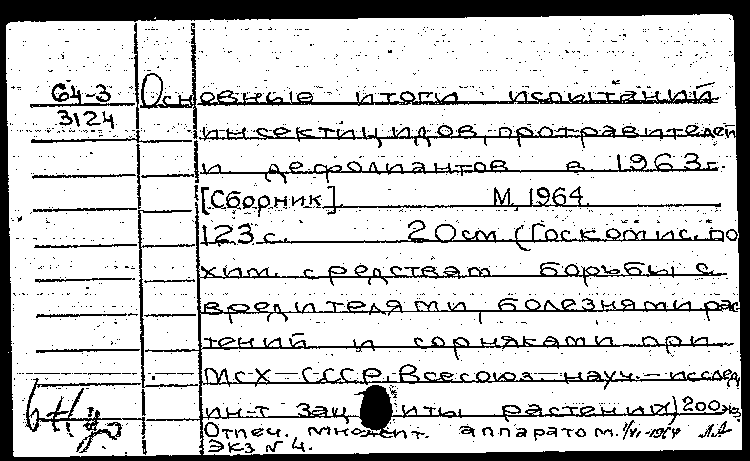 64-3
3124
Основные итоги испытаний
инсектицидов, протравителей
и дефолиантов в 1963 г.
[Сборник]. М, 1964.
123 с. 20 см (Госкомис. по
хим. средствам борьбы с
вредителями, болезнями рас
тений и сорняками при
МСХ-СССР. Всесоюз. науч.-исслед
ин-т защиты растений) 200 экз
Отпеч. множит. аппаратом.
Экз № 4.